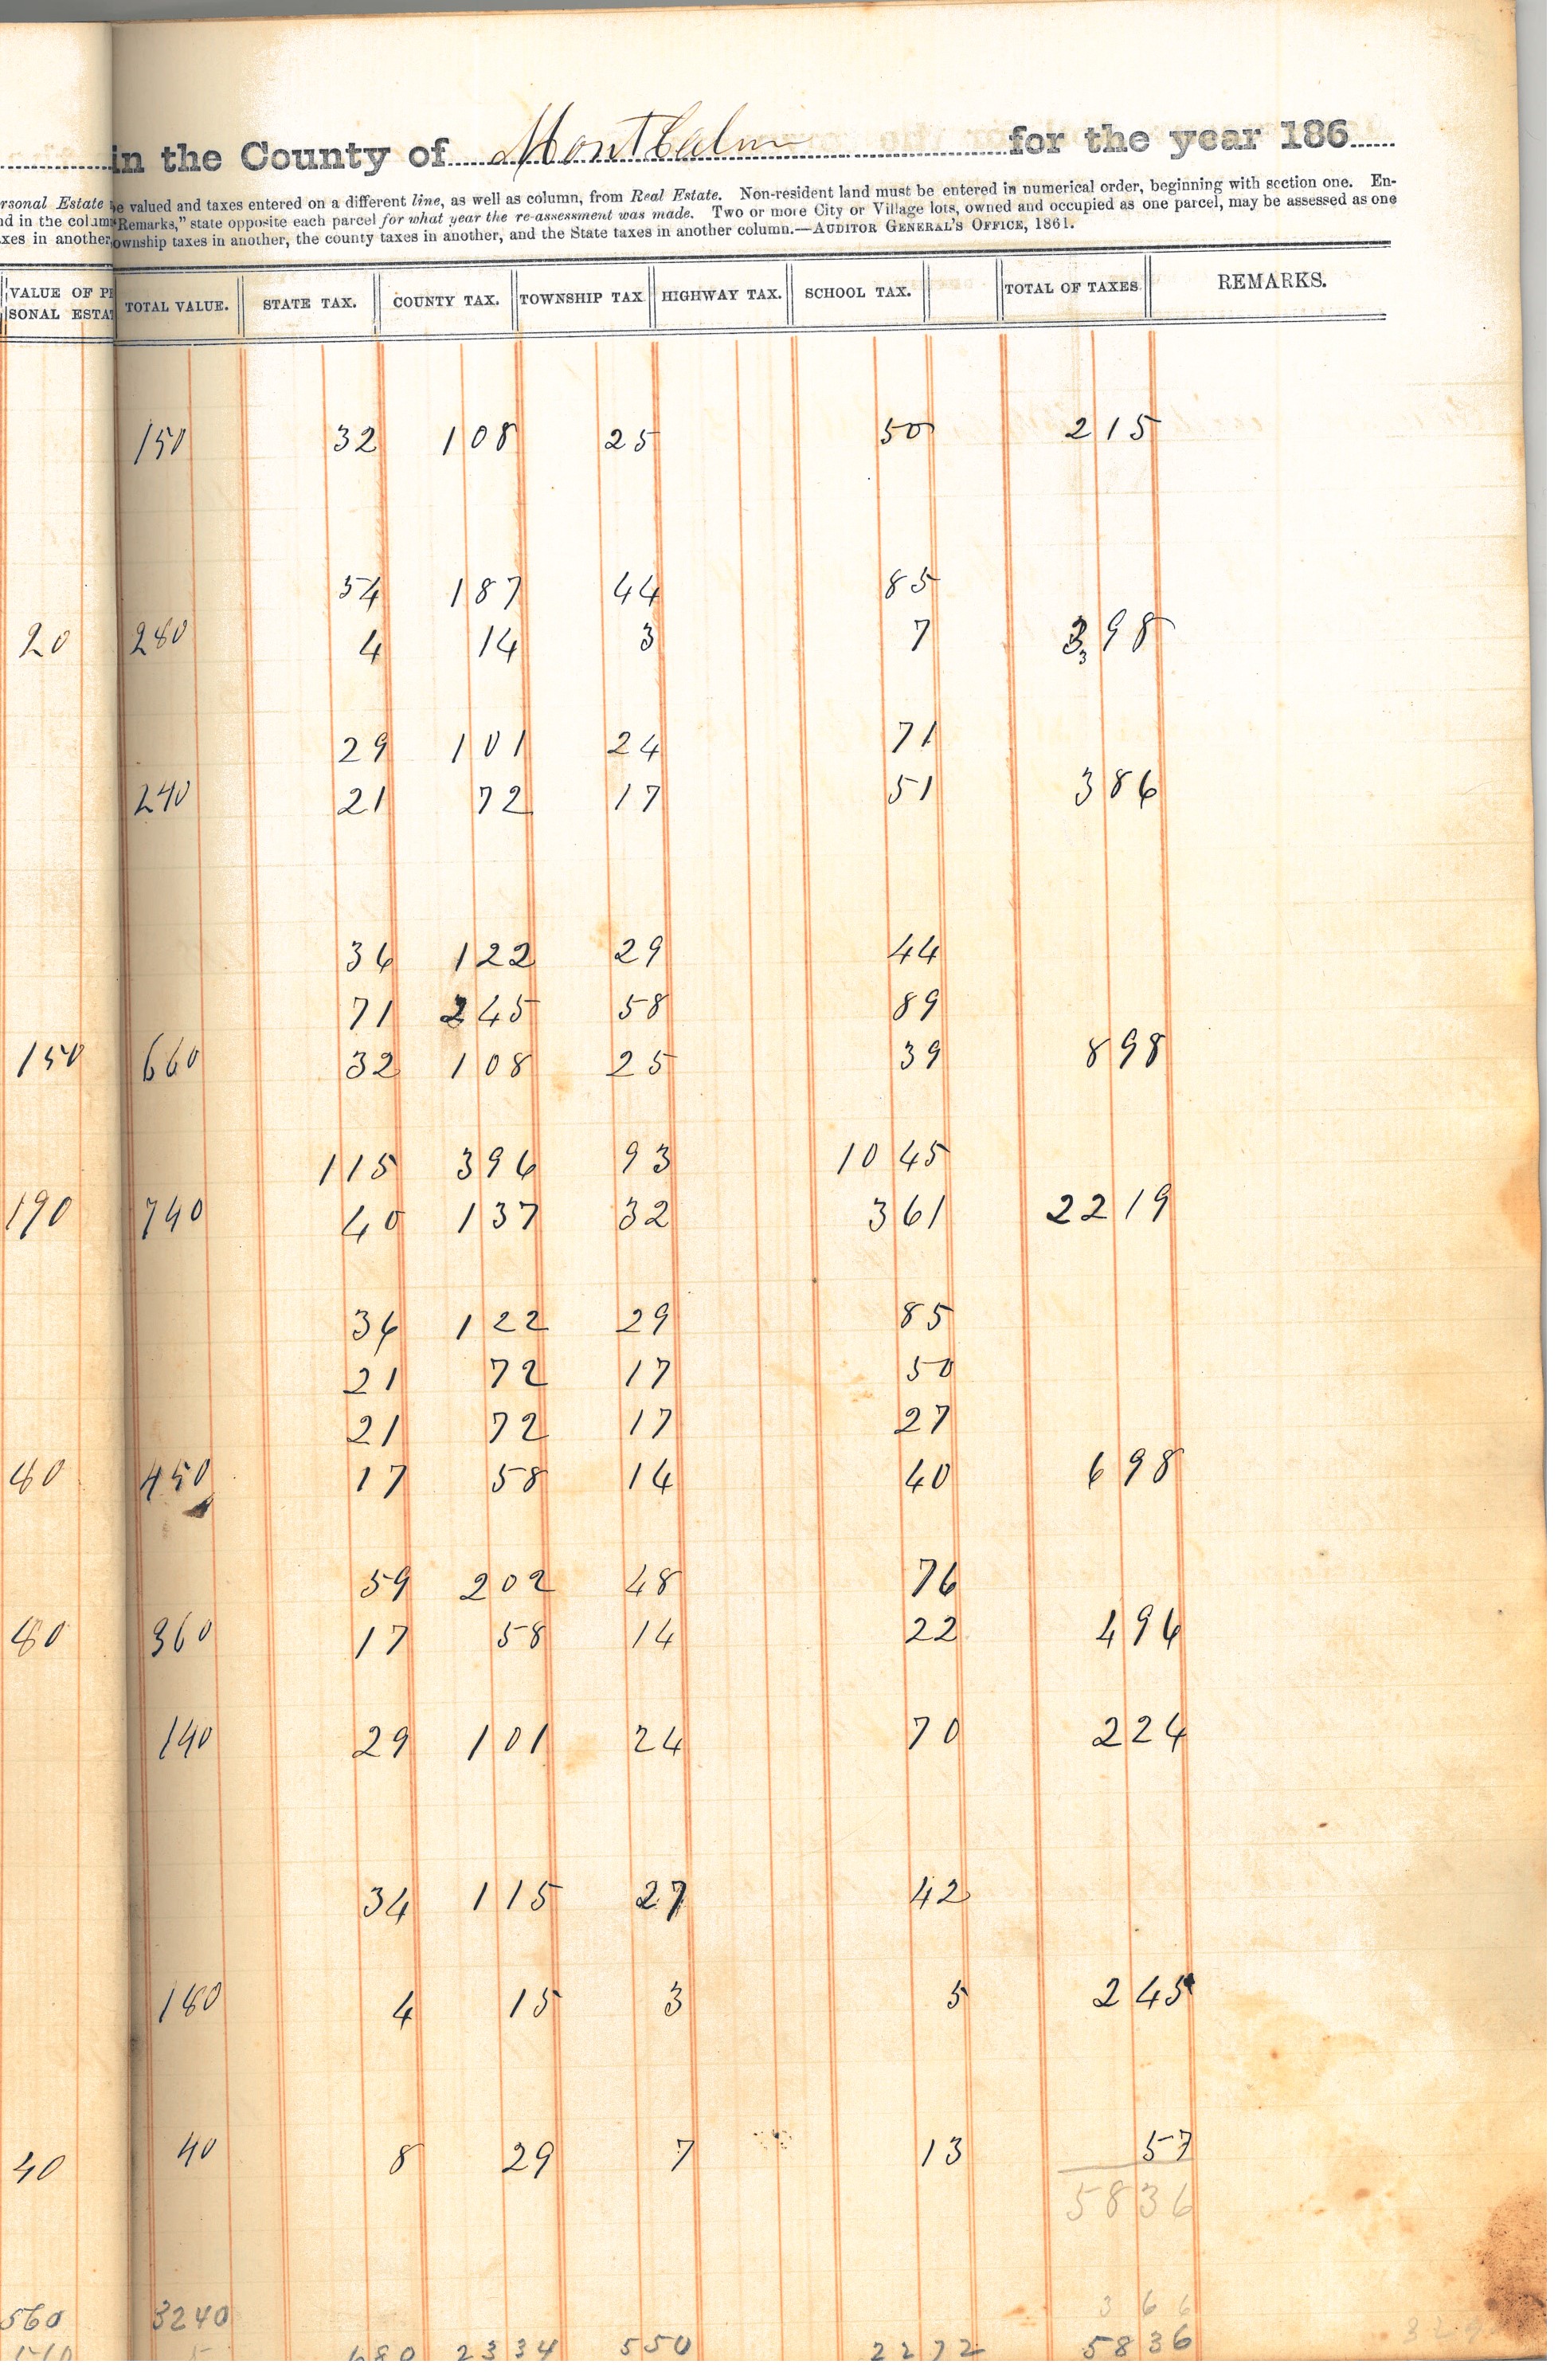 in the County of MontCalm for the year 186
rsonal Estate be valued and taxes entered on a different line, as well as column, from Real Estate. Non-resident land must be entered in numerical order, beginning with section one. En-
nd in the column "Remarks," state opposite each parcel for what year the re-assessment was made. Two or more City or Village lots, owned and occupied as one parcel, may be assessed as one
xes in another, ownship taxes in another, the county taxes in another, and the State taxes in another column.—AUDITOR GENERAL'S OFFICE, 1861.
VALUE OF PE SONAL ESTAT TOTAL VALUE. STATE TAX. COUNTY TAX. TOWNSHIP TAX HIGHWAY TAX. SCHOOL TAX. TOTAL OF TAXES REMARKS.
150 32 1 08 25 50 2 15
54 1 87 44 85
20 280 4 14 3 7 3 98
29 1 01 24 71
240 21 72 17 51 3 86
36 1 22 29 44
71 2 45 58 89
150 660 32 1 08 25 39 8 98
1 15 3 96 93 10 45
190 740 40 1 37 32 3 61 22 19
36 1 22 29 85
21 72 17 50
21 72 17 27
60 450 17 58 14 40 6 98
59 2 02 48 76
80 360 17 58 14 22 4 96
140 29 1 01 24 70 2 24
34 1 15 27 42
180 4 15 3 5 2 45
40 40 8 29 7 13 57
58 36
3 6 6
560 3240
680 23 34 5 50 22 72 58 36